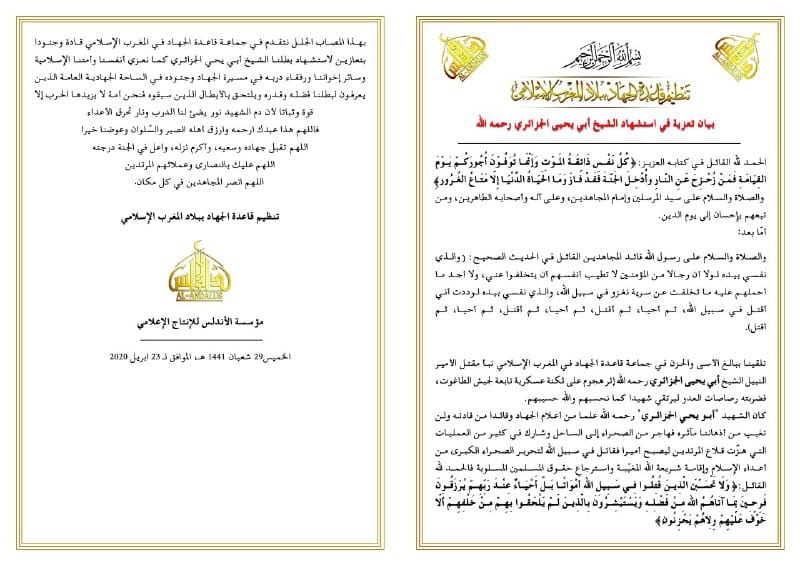 بسم الله الرحمن الرحيم
تنظيم قاعدة الجهاد ببلاد المغرب الإسلامي
بيان تعزية في استشهاد الشيخ أبي يحيى الجزائري رحمه الله
الحمد لله القائل في كتابه العزيز: ﴿كُلُّ نَفْسٍ ذَائِقَةُ المَوْتِ وَإِنَّمَا تُوَفَّوْنَ أُجُورَكُمْ يَوْمَ
القِيَامَةِ فَمَنْ زُحْزِحَ عَنِ النَّارِ وَأُدْخِلَ الجَنَّةَ فَقَدْ فَازَ وَمَا الحَيَاةُ الدُّنْيَا إِلَّا مَتَاعُ الغُرُورِ﴾
والصلاة والسلام على سيد المرسلين وإمام المجاهدين، وعلى آله وأصحابه الطاهرين، ومن
تبعهم بإحسان إلى يوم الدين.
أمّا بعد:
والصلاة والسلام على رسول الله قائد المجاهدين القائل في الحديث الصحيح: (والذي
نفسي بيده لولا ان رجالا من المؤمنين لا تطيب انفسهم ان يتخلفوا عني، ولا اجد ما
احملهم عليه ما تخلفت عن سرية تغزو في سبيل الله، والذي نفسي بيده لوددت أني
أقتل في سبيل الله، ثم أحيا، ثم أقتل، ثم أحيا، ثم أقتل، ثم أحيا، ثم
أقتل).
تلقينا ببالغ الاسى والحزن في جماعة قاعدة الجهاد في المغرب الإسلامي نبا مقتل الامير
النبيل الشيخ أبي يحيى الجزائري رحمه الله إثر هجوم على ثكنة عسكرية تابعة لجيش الطاغوت،
فضربته رصاصات العدو ليرتقي شهيدا كما نحسبهم والله حسيبهم.
كان الشهيد "أبو يحي الجزائري" رحمه الله علما من اعلام الجهاد وقائدا من قادته ولن
تغيب من أذهاننا مآثره فهاجر من الصحراء إلى الساحل وشارك في كثير من العمليات
التي هزّت قلاع المرتدين ليصبح أميرا فقاتل في سبيل الله لتحرير الصحراء الكبرى من
أعداء الإسلام وإقامة شريعة الله المغيّبة واسترجاع حقوق المسلمين المسلوبة فالحمد لله
القائل: ﴿وَلَا تَحْسَبَنَّ الَّذِينَ قُتِلُوا فِي سَبِيلِ اللهِ أَمْوَاتًا بَلْ أَحْيَاءٌ عِنْدَ رَبِّهِمْ يُرْزَقُونَ
فَرِحِينَ بِمَا آتَاهُمُ اللهُ مِنْ فَضْلِهِ وَيَسْتَبْشِرُونَ بِالَّذِينَ لَمْ يَلْحَقُوا بِهِمْ مِنْ خَلْفِهِمْ أَلَّا
خَوْفٌ عَلَيْهِمْ وِلَاهُمْ يَحْزَنُونَ﴾
بهذا المصاب الجلل نتقدم في جماعة قاعدة الجهاد في المغرب الإسلامي قادة وجنودا
بتعازين لاستشهاد بطلنا الشيخ ابي يحي الجزائري كما نعزي انفسنا وامتنا الإسلامية
وسائر إخواننا ورفقاء دربه في مسيرة الجهاد وجنوده في الساحة الجهادية العامة الذين
يعرفون لبطلنا فضله وقدره ويلتحق بالأبطال الذين سبقوه فنحن امة لا يزيدها الحرب إلا
قوة وثباتا لان دم الشهيد نور يضئ لنا الدرب ونار تحرق الأعداء
فاللهم هذا عبدك ارحمه وارزق اهله الصبر والسّلوان وعوضنا خيرا
اللهم تقبل جهاده وسعيه، وأكرم نزله، واعل في الجنة درجته
اللهم عليك بالنصارى وعملائهم المرتدين
اللهم انصر المجاهدين في كل مكان.
تنظيم قاعدة الجهاد ببلاد المغرب الإسلامي
الأندلس
AL-ANDALUS
مؤسسة الأندلس للإنتاج الإعلامي
الخميس29 شعبان 1441 هـ، الموافق لـ 23 ابريل 2020